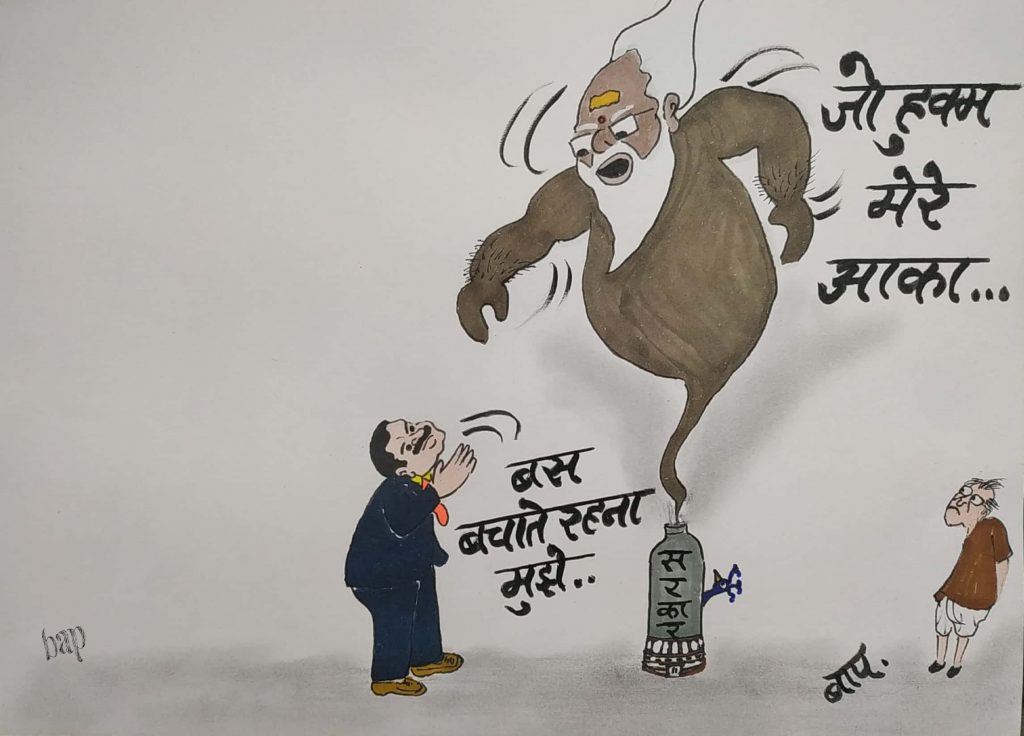 जो हुक्म
मेरे
आका...
बस
बचाते रहना
मुझे..
सरकार
bap
बाप.